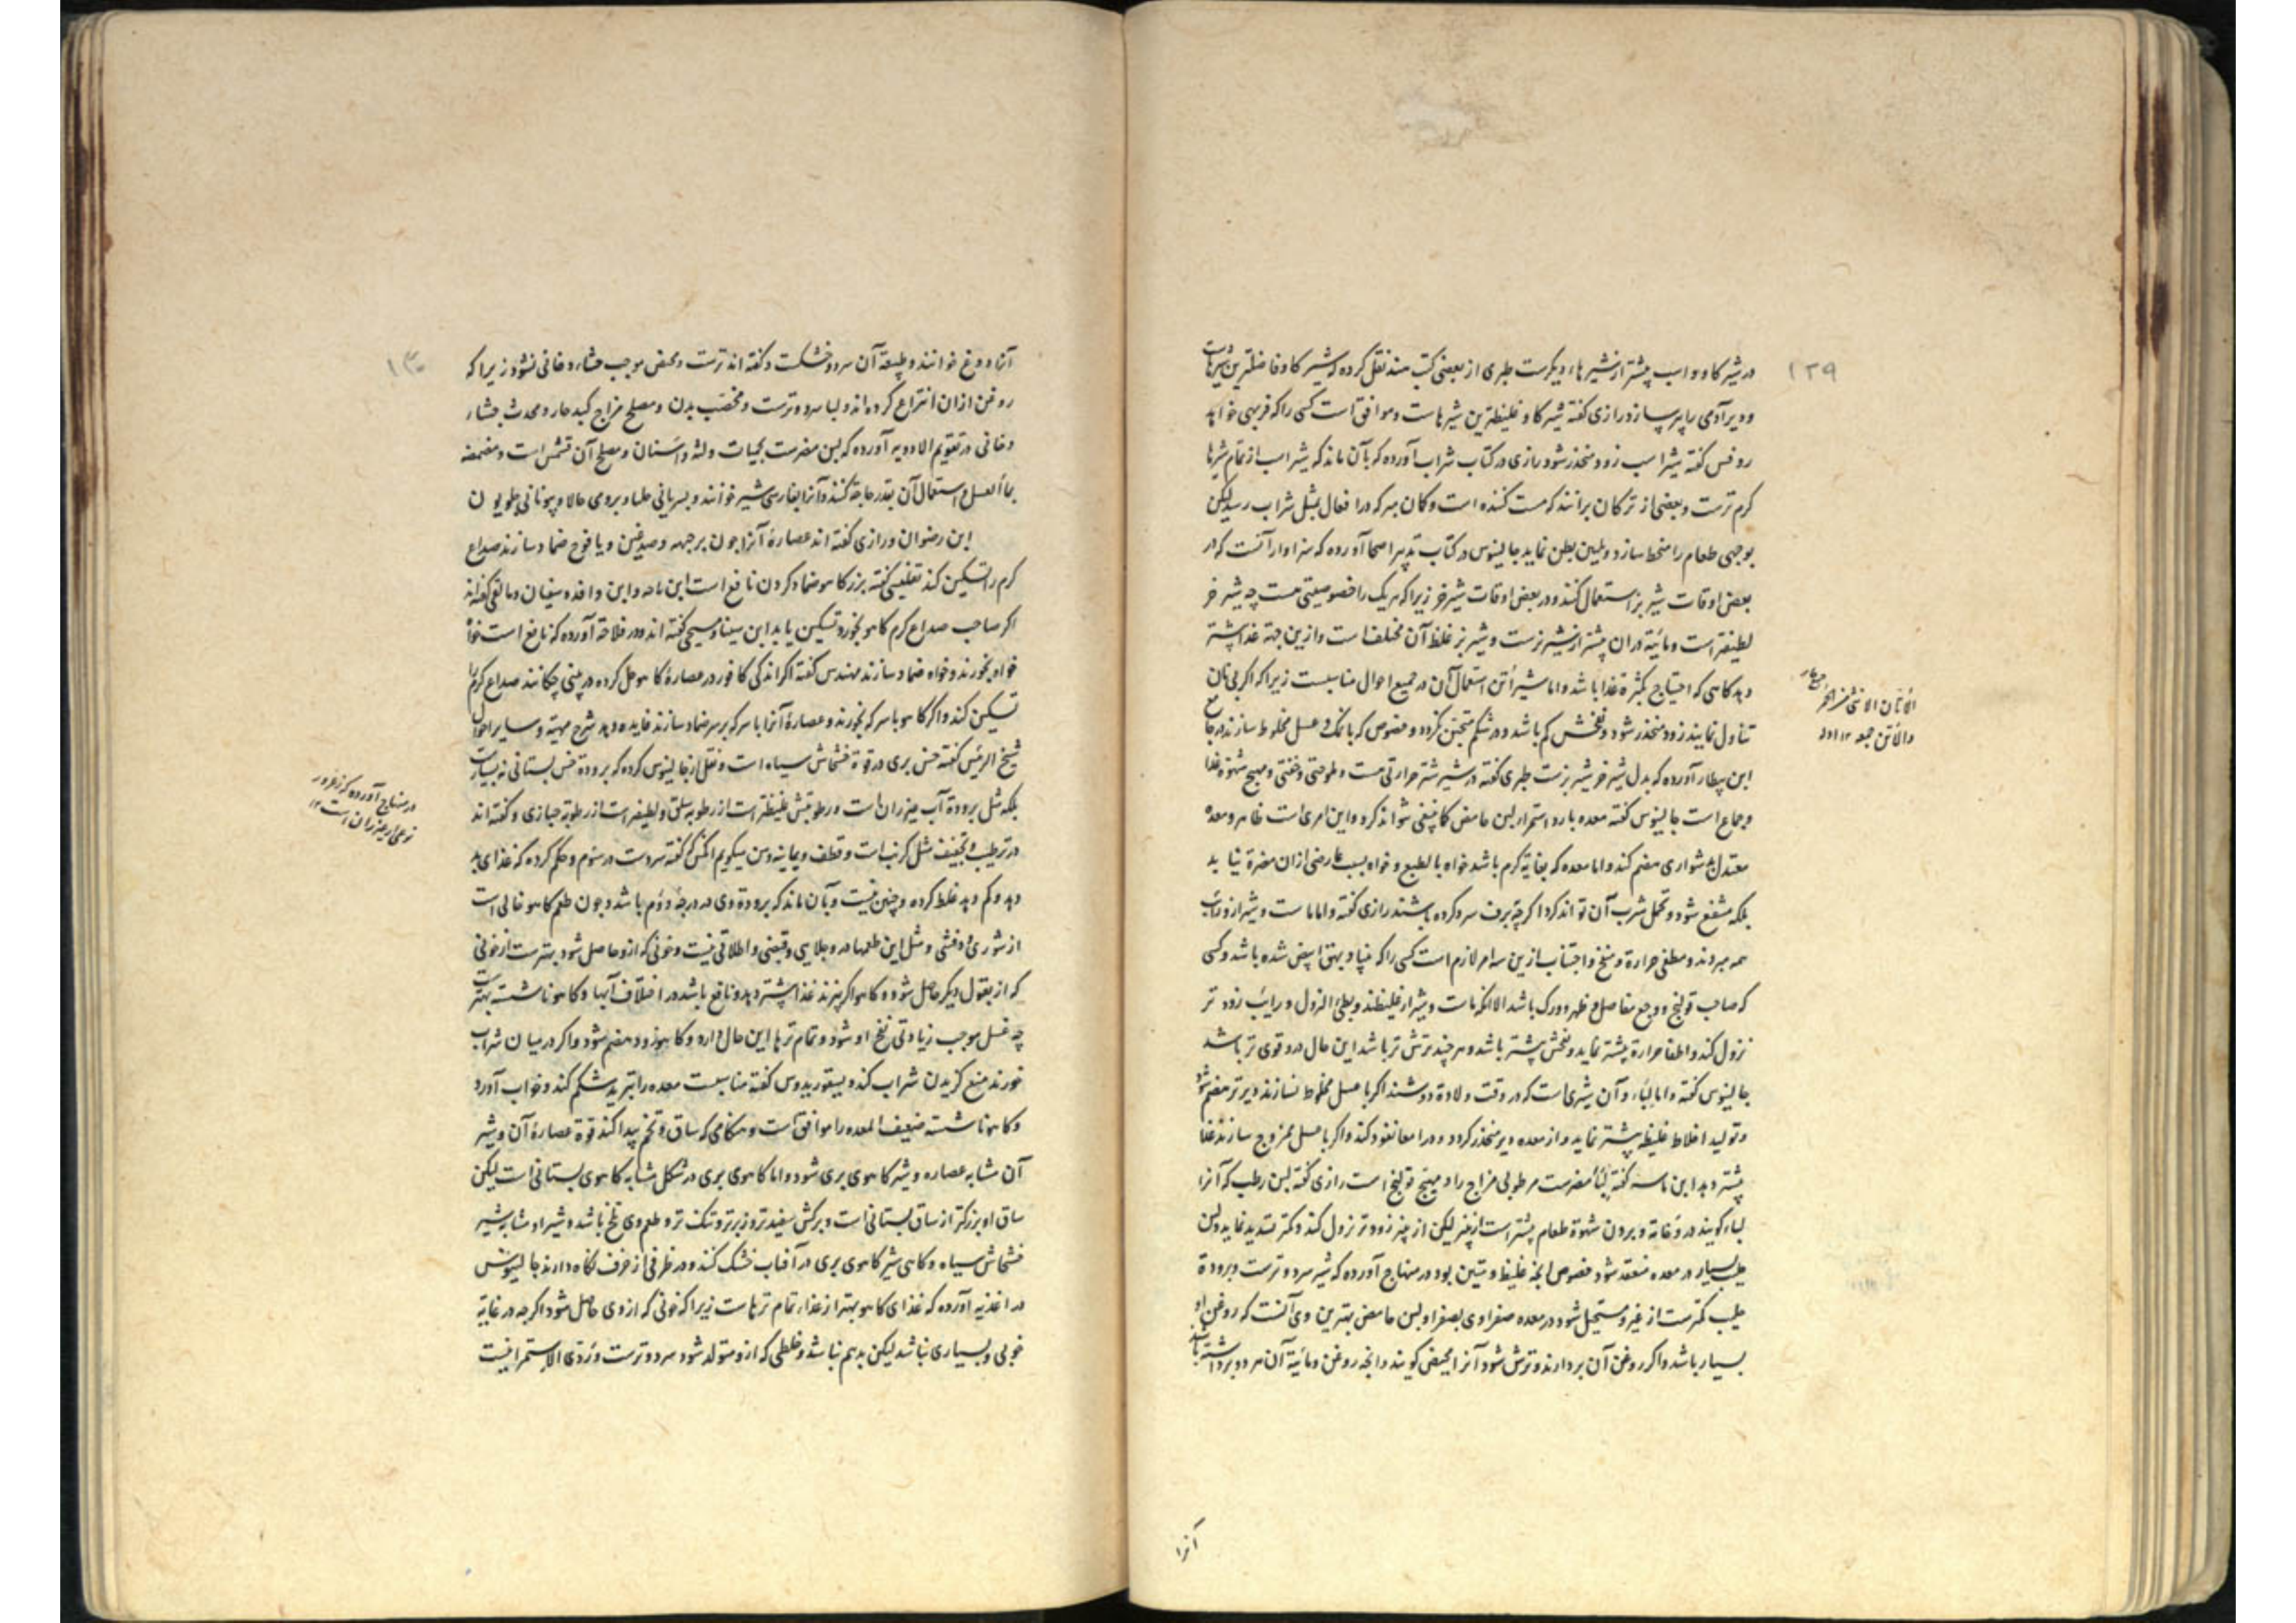 ۱۲۹
در شیر گاو و اسب پیشتر از شیرها، دیگرست طبری از بعضی کتب هند نقل کرده که شیر گاو فاضلترین شیرهاست
و دیر آدمی را پیر سازد رازی گفته شیر گاو غلیظترین شیرهاست و موافق است کسی را که فربهی خواهد
روفس گفته شیر اسب زود منحدر شود رازی در کتاب شراب آورده که بآن ماند که شیر اسب از تمام شیرها
گرم ترست و بعضی از ترکان برانند که مست کننده است و کان مبر که در افعال بمثل شراب رسد لیکن
بوجهی طعام را منحط سازد و تلیین بطن نماید جالینوس در کتاب تدبیر اصحا آورده که سزاوار آنست که در
بعض اوقات شیر بز استعمال کنند و در بعض اوقات شیر خر زیرا که هریک را خصوصیتی هست چه شیر خر
لطیفتر است و مائیة در ان پیشتر از شیر بزست و شیر بز غلظ آن مختلف است و ازین جهة غذا پیشتر
دهد گاهی که احتیاج بکثرة غذا باشد و اما شیر أتن استعمال آن در جمیع احوال مناسبست زیرا که اگر بی نان
تناول نمایند زود منحدر شود و نفخش کم باشد و در شکم متجبن نگردد و خصوص که با نمک و عسل مخلوط سازند در جامع
ابن بیطار آورده که بدل شیر خر شیر بزست طبری گفته در شیر شتر حرارتی هست و ملوحتی و خفتی و مهیج شهوة غذا
و جماع است جالینوس گفته معده بارد استمراء لبن حامض کما ینبغی نتواند کرد و این امری است ظاهر و معده
معتدل بدشواری هضم کند و اما معده که بغایة گرم باشد خواه بالطبع و خواه بسبب عارضی ازان مضرة نیابد
بلکه منتفع شود و تحمل شرب آن تواند کرد اگرچه ببرف سرد کرده باشند رازی گفته و اما ماست و شیراز و رائب
همه مبردند و مطفی حرارة و منفخ و اجتناب ازین سه امر لازم است کسی را که مهیا و بهق ابیض شده باشد و کسی
که صاحب قولنج و وجع مفاصل و ظهر و ورک باشد الا آنکه ماست و شیراز غلیظند و بطئ النزول و رایب زود تر
نزول کند و اطفا حرارة پیشتر نماید و نفخش پیشتر باشد و هر چند ترش تر باشد این حال در و قوی تر باشد
جالینوس گفته و اما لباء و آن شیری است که در وقت ولادة دوشند اگر با عسل مخلوط نسازند دیرتر هضم شود
و تولید اخلاط غلیظه پیشتر نماید و از معده دیر منحدر گردد و در امعا نفوذ کند و اگر با عسل ممزوج سازند غذا
پیشتر دهد ابن ماسه گفته لباء مضرست مرطوبی مزاج را و مهیج قولنج است رازی گفته لبن رطب که آنرا
لباء گویند در وخامة و بردن شهوة طعام پیشتر است از پنیر لیکن از پنیر زودتر نزول کند و کمتر تسدید نماید و لبن
حلیب بسیار در معده منعقد شود خصوص انچه غلیظ و متین بود در منهاج آورده که شیر سرد و ترست و برودة
حلیب کمترست از غیر و مستحیل شود در معده صفراوی بصفرا و لبن حامض بهترین وی آنست که روغن او
بسیار باشد و اگر روغن آن بردارند و ترش شود آنرا مخیض گویند و انچه روغن و مائیة آن هر دو برداشته باشند
آنرا
الأتان الانثی من الحمر
والأتن جمع ۱۲
۱۳۰
آنرا دوغ خوانند و طبیعة آن سرد و خشکست و گفته اند ترست و مخیض موجب جشاء دخانی نشود زیرا که
روغن ازان انتزاع کرده اند و لبا سرد و ترست و مخصب بدن و مصلح مزاج کبد حار و محدث جشاء
دخانی در تقویم الادویه آورده که لبن مضرست بحمیات و لثه و اسنان و مصلح آن قشمش است و مضمضه
بماء العسل و استعمال آن بقدر حاجة کنند و آنرا بفارسی شیر خوانند و بسریانی حلبا و برومی حالا و بیونانی
ابن رضوان و رازی گفته اند عصارۀ آنرا چون بر جبهه و صدغین و یافوخ ضماد سازند صداع
گرم را تسکین کند تفلیسی گفته بزر کاهو ضماد کردن نافع است ابن ماسه و ابن وافد و سفیان و مالقی گفته اند
اگر صاحب صداع گرم کاهو بخورد تسکین یابد ابن سینا و مسیحی گفته اند و در فلاحة آورده که نافع است
خواه بخورند و خواه ضماد سازند مهندس گفته اگر اندکی کافور در عصارۀ کاهو حل کرده در بینی چکانند صداع گرم را
تسکین کند و اگر کاهو با سرکه بخورند و عصارۀ آنرا با سرکه بر سر ضماد سازند فایده دهد شرح مهیة و سایر احوال
شیخ الرئیس گفته خس بری در قوة خشخاش سیاه است و نقل از جالینوس کرده که برودة خس بستانی نه بسیارست
بلکه مثل برودة آب غدیران است و رطوبتش غلیظتر است از رطوبة سلق و لطیفتر است از رطوبة خبازی و گفته اند
در ترطیب و تجفیف مثل کرنب است و قطف و یمانیه و من میگویم آنکس که گفته سردست در سوم و حکم کرده که غذای بد
دهد و کم دهد غلط کرده و چنین نیست و بآن ماند که برودة وی در درجۀ دوم باشد و چون طعم کاهو خالی است
از شوری و عفصی و مثل این طعمها در و جلایی و قبضی و اطلاقی نیست و خونی که ازو حاصل شود بهترست از خونی
که از بقول دیگر حاصل شود و کاهو اگر پزند غذا پیشتر دهد و نافع باشد در اختلاف آبها و کاهو ناشسته بهترست
چه غسل موجب زیادتی نفخ او شود و تمام ترها این حال دارد و کاهو زود هضم شود و اگر در میان شراب
خورند منع گزیدن شراب کند دیسقوریدوس گفته مناسبست معده را تبرید شکم کند و خواب آورد
و کاهو ناشسته ضعیف المعده را موافق است و هنگامی که ساق و تخم پیدا کند قوة عصارۀ آن و شیر
آن مشابه عصاره و شیر کاهوی بری شود و اما کاهوی بری در شکل مشابه کاهوی بستانی است لیکن
ساق او بزرگتر از ساق بستانی است و برگش سفیدتر و زبرتر و تنک تر و طعم وی تلخ باشد و شیر او مشابه شیر
خشخاش سیاه و گاهی شیر کاهوی بری در آفتاب خشک کنند و در ظرفی از خزف نگاه دارند جالینوس
در اغذیه آورده که غذای کاهو بهتر از غذاء تمام ترهاست زیرا که خونی که از وی حاصل شود اگرچه در غایة
خوبی و بسیاری نباشد لیکن بد هم نباشد و خلطی که ازو متولد شود سرد و ترست و ردی الاستمرا نیست
در منهاج آورده که
نوعی از است ۱۲